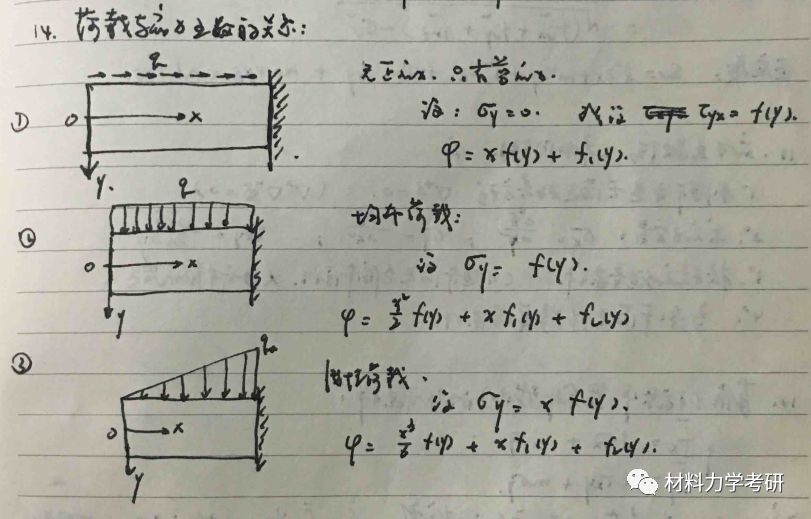 14. 荷载与应力函数的关系:
① q
O x
y.
无正应力. 只有剪应力.
设: σy=0. 或设 τyx = f(y).
φ = x f(y) + f₁(y).
② q
O x
y
均布荷载:
设 σy = f(y).
φ = x²/2 f(y) + x f₁(y) + f₂(y)
③ q₀
O x
y
线性荷载.
设 σy = x f(y).
φ = x³/6 f(y) + x f₁(y) + f₂(y).
材料力学考研